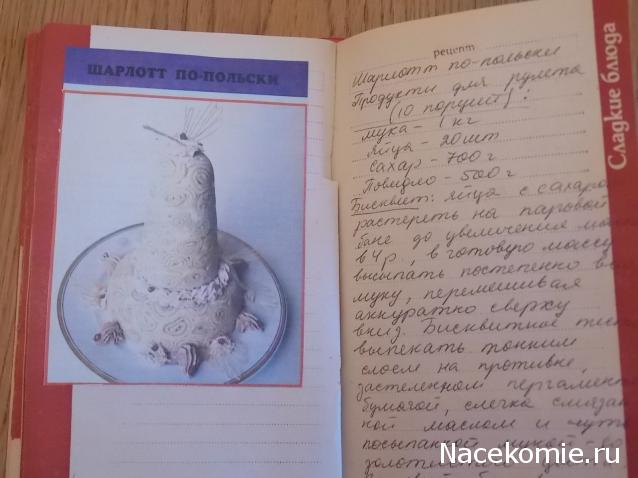 ШАРЛОТТ ПО-ПОЛЬСКИ
рецепт
Шарлотт по-польски
Продукты для рулета
(10 порций):
мука – 1 кг
яйца – 20 шт
сахар – 700 г
Повидло – 500 г
Бисквит: яйца с сахаро
растереть на паровой
бане до увеличения
в 4 р., в готовую массу
высыпать постепенно
муку, перемешивая
аккуратно сверху
вниз. Бисквитное тест
выпекать тонким
слоем на противне,
застеленном пергамент
бумагой, слегка смазан
ной маслом и
посыпанной мукой до
Сладкие блюда
Nacekomie.ru